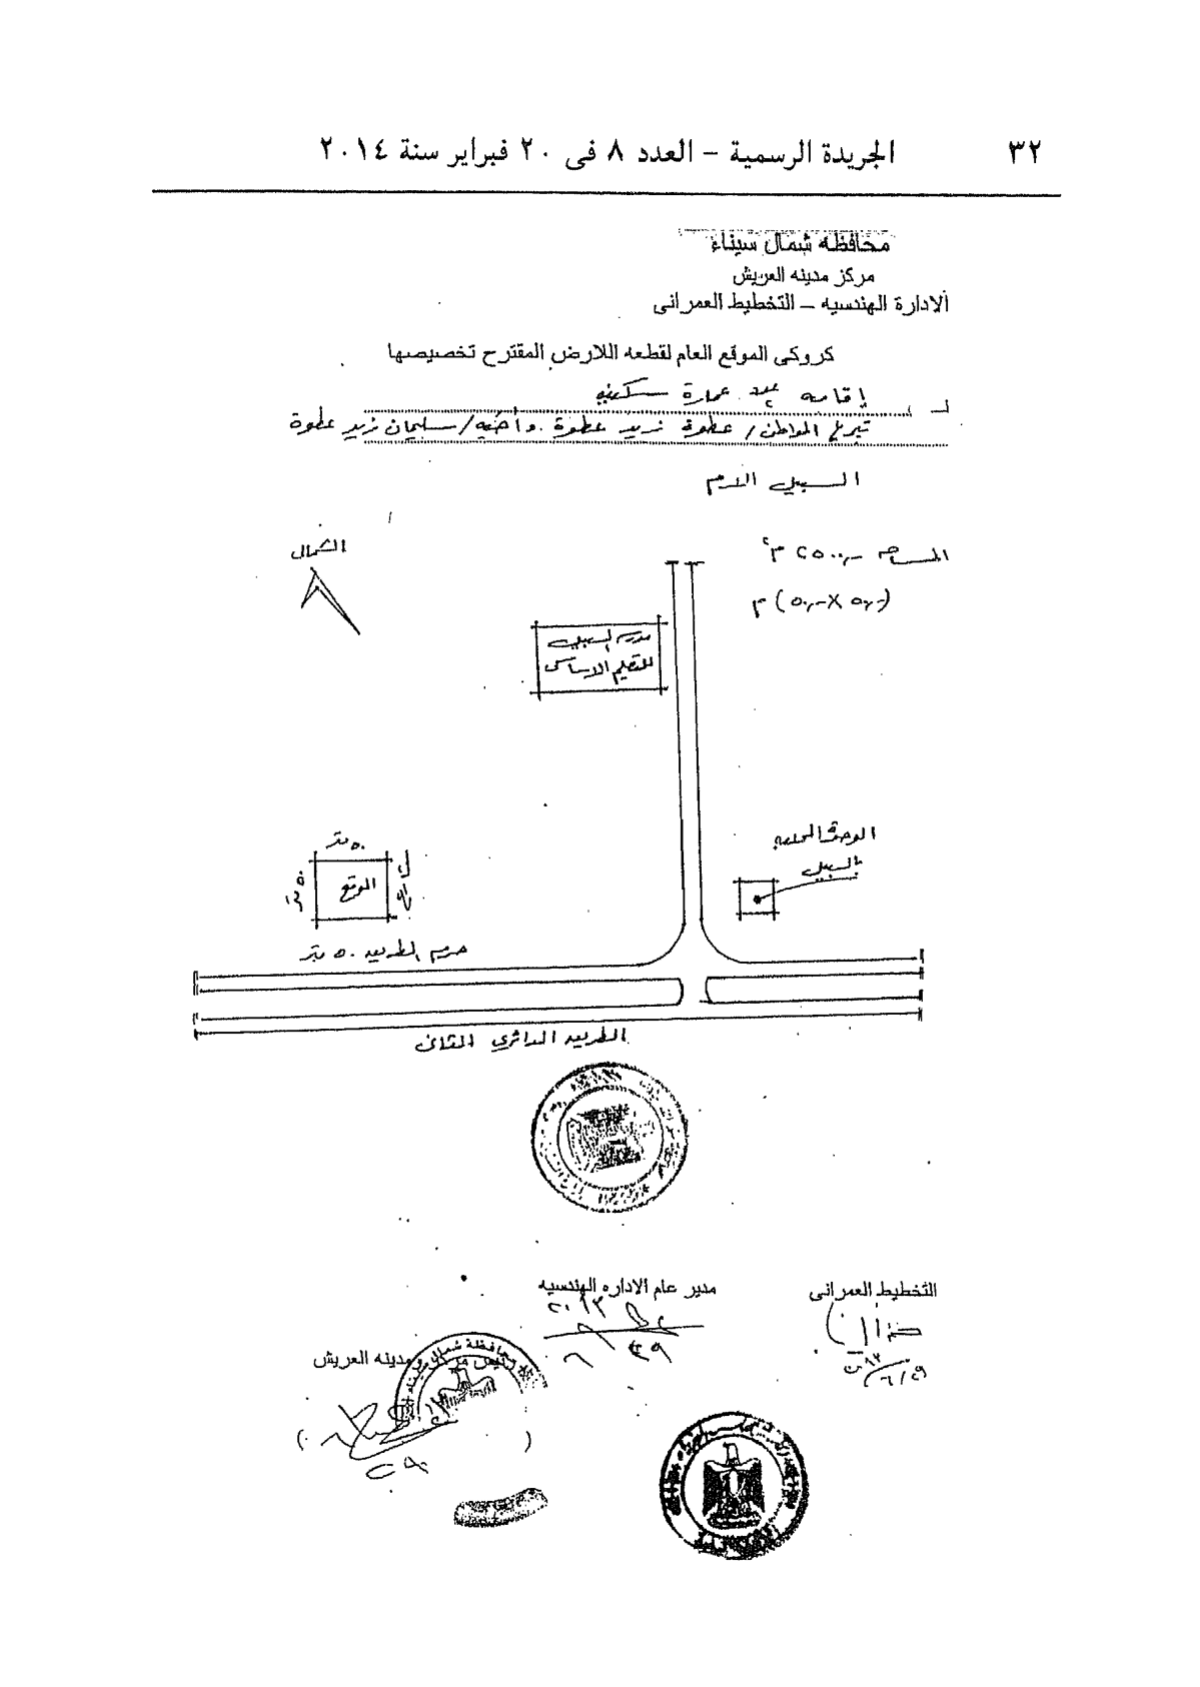 ٣٢ الجريدة الرسمية – العدد ٨ فى ٢٠ فبراير سنة ٢٠١٤
محافظه شمال سيناء
مركز مدينه العريش
الادارة الهندسيه – التخطيط العمرانى
كروكى الموقع العام لقطعه اللارض المقترح تخصيصها
لـ إقامه عدد عمارة سكنيه
تبرع المواطن / عطوة زيد عطوة وأخيه / سليمان زيد عطوة
المساحه ٢٥٠٠,- م٢
(٥٠,- X ٥٠,-) م
الشمال
مدرسة السبيل
للتعليم الاساسى
الوحدة المحليه
بالسبيل
٥٠ متر
٥٠ متر
الموقع
حرم الطريق ٥٠ متر
الطريق الدائري
التخطيط العمرانى
مدير عام الاداره الهندسيه
رئيس مركز ومدينه العريش
محافظة شمال سيناء